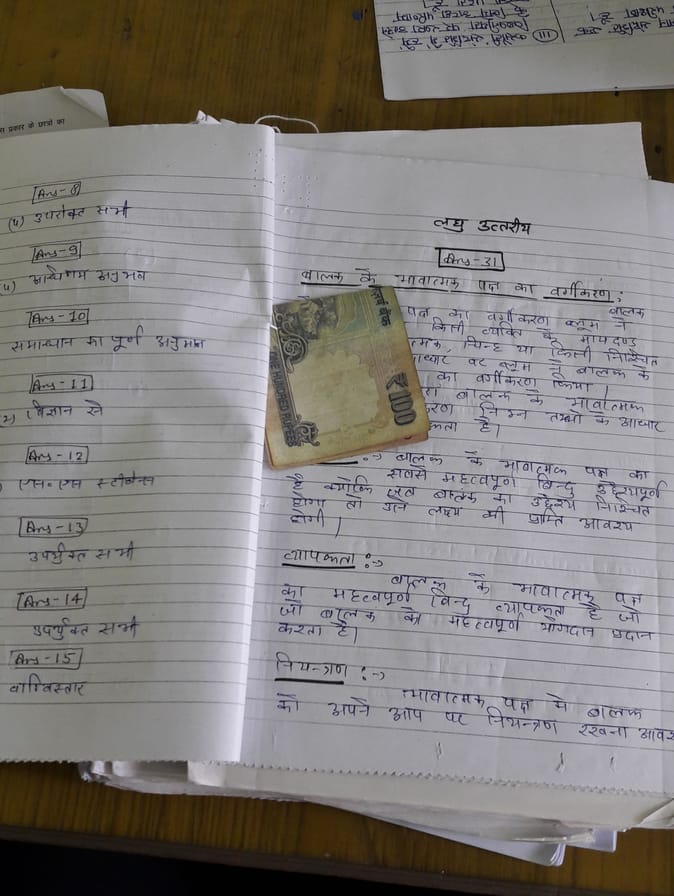 स प्रकार के छात्रों का
Ans-8
(4) उपरोक्त सभी
Ans-9
अनुभव
Ans-10
समाधान का पूर्ण अनुमान
Ans-11
2) विज्ञान से
Ans-12
एस॰ एस स्टीवेन्स
Ans-13
उपर्युक्त सभी
Ans-14
उपर्युक्त सभी
Ans-15
वाग्विस्तार
लघु उत्तरीय
Ans-31
बालक के भावात्मक पक्ष का वर्गीकरण;
बालक
पक्ष का वर्गीकरण ब्लूम ने
किसी व्यक्ति के मापदण्ड
त्मक, चिन्ह या किसी निश्चित
आधार पर ब्लूम ने बालक के
का वर्गीकरण किया।
बालक के भावात्मक
करण निम्न तथ्यों के आधार
कता है।
₹100
ONE HUNDRED RUPEES
:-> बालक के भावात्मक पक्ष का
सबसे महत्वपूर्ण बिन्दु उद्देश्यपूर्ण
है क्योंकि बालक का उद्देश्य निश्चित
होगा तो उसे लक्ष्य की प्राप्ति आवश्य
होगी।
व्यापकता :->
बालक के भावात्मक पक्ष
का महत्वपूर्ण बिन्दु व्यापकता है जो
जो बालक को महत्वपूर्ण योगदान प्रदान
करता है।
नियन्त्रण :->
भावात्मक पक्ष मे बालक
को अपने आप पर नियन्त्रण रखना आवश